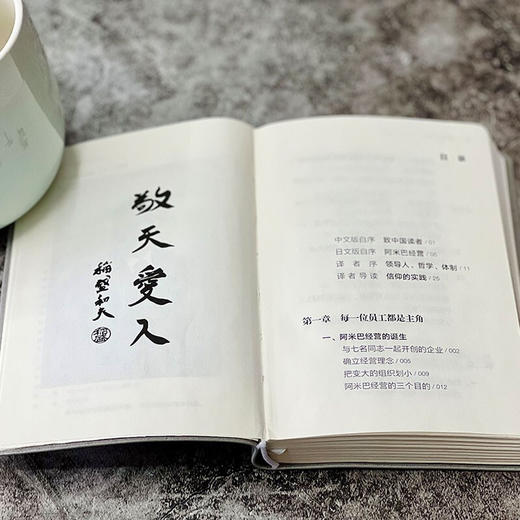 敬天愛人
稲盛和夫
目 录
中文版自序 致中国读者/01
日文版自序 阿米巴经营/06
译者序 领导人、哲学、体制/11
译者导读 信仰的实践/25
第一章 每一位员工都是主角
一、阿米巴经营的诞生
与七名同志一起开创的企业/002
确立经营理念/005
把变大的组织划小/009
阿米巴经营的三个目的/012